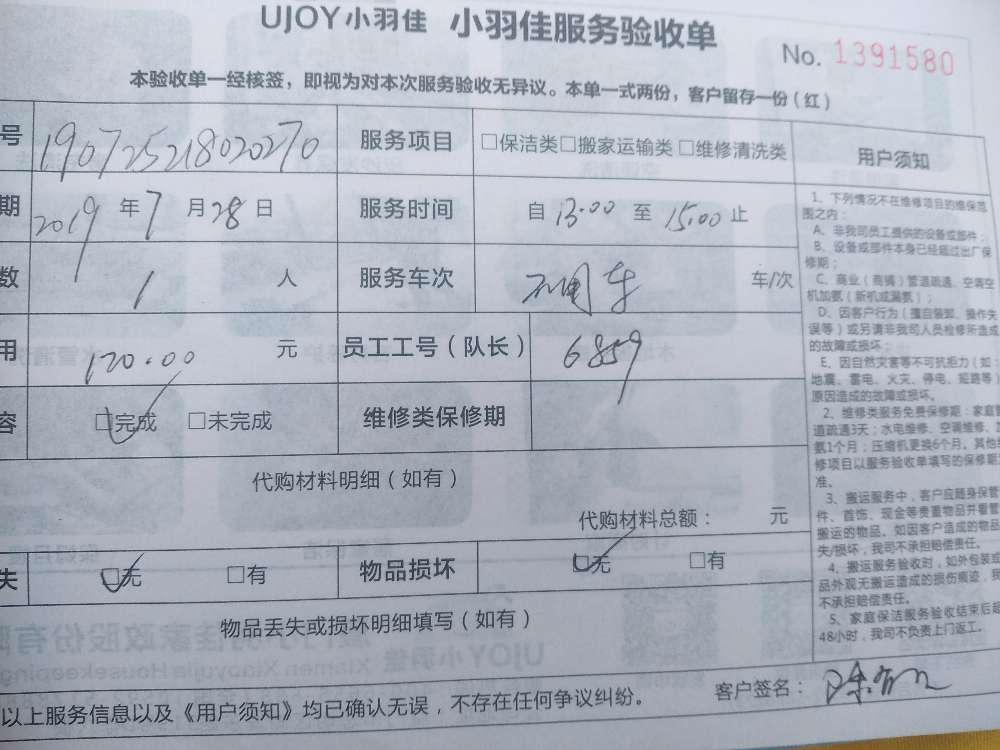 UJOY小羽佳 小羽佳服务验收单
No. 1391580
本验收单一经核签，即视为对本次服务验收无异议。本单一式两份，客户留存一份（红）
号 190725218020270 服务项目 □保洁类□搬家运输类 □维修清洗类
期 2019 年 7 月 28 日 服务时间 自 13.00 至 15.00 止
数 1 人 服务车次 不用车 车/次
用 120.00 元 员工工号（队长） 6859
容 □完成 □未完成 维修类保修期
代购材料明细（如有）
代购材料总额： 元
失 □无 □有 物品损坏 □无 □有
物品丢失或损坏明细填写（如有）
以上服务信息以及《用户须知》均已确认无误，不存在任何争议纠纷。
客户签名：
用户须知
1、下列情况不在维修项目的维保范
围之内：
A、非我司员工提供的设备或部件；
B、设备或部件本身已经超过出厂保
修期；
C、商业（商铺）管道疏通、空调空
机加氨（新机或漏氨）；
D、因客户行为（擅自装卸、操作失
误等）或另请非我司人员检修所造成
的故障或损坏
E、因自然灾害等不可抗拒力（如：
地震、雷电、火灾、停电、短路等）
原因造成的故障或损坏。
2、维修类服务免费保修期：家庭管
道疏通3天；水电维修、空调维修、加
氨1个月；压缩机更换6个月，其他维
修项目以服务验收单填写的保修期为
准。
3、搬运服务中，客户应随身保管
件、首饰、现金等贵重物品并看管
搬运的物品。如因客户造成的物品
失/损坏，我司不承担赔偿责任。
4、搬运服务验收时，如外包装或
品外观无搬运造成的损伤痕迹，我
不承担赔偿责任。
5、家庭保洁服务验收结束后超
48小时，我司不负责上门返工。